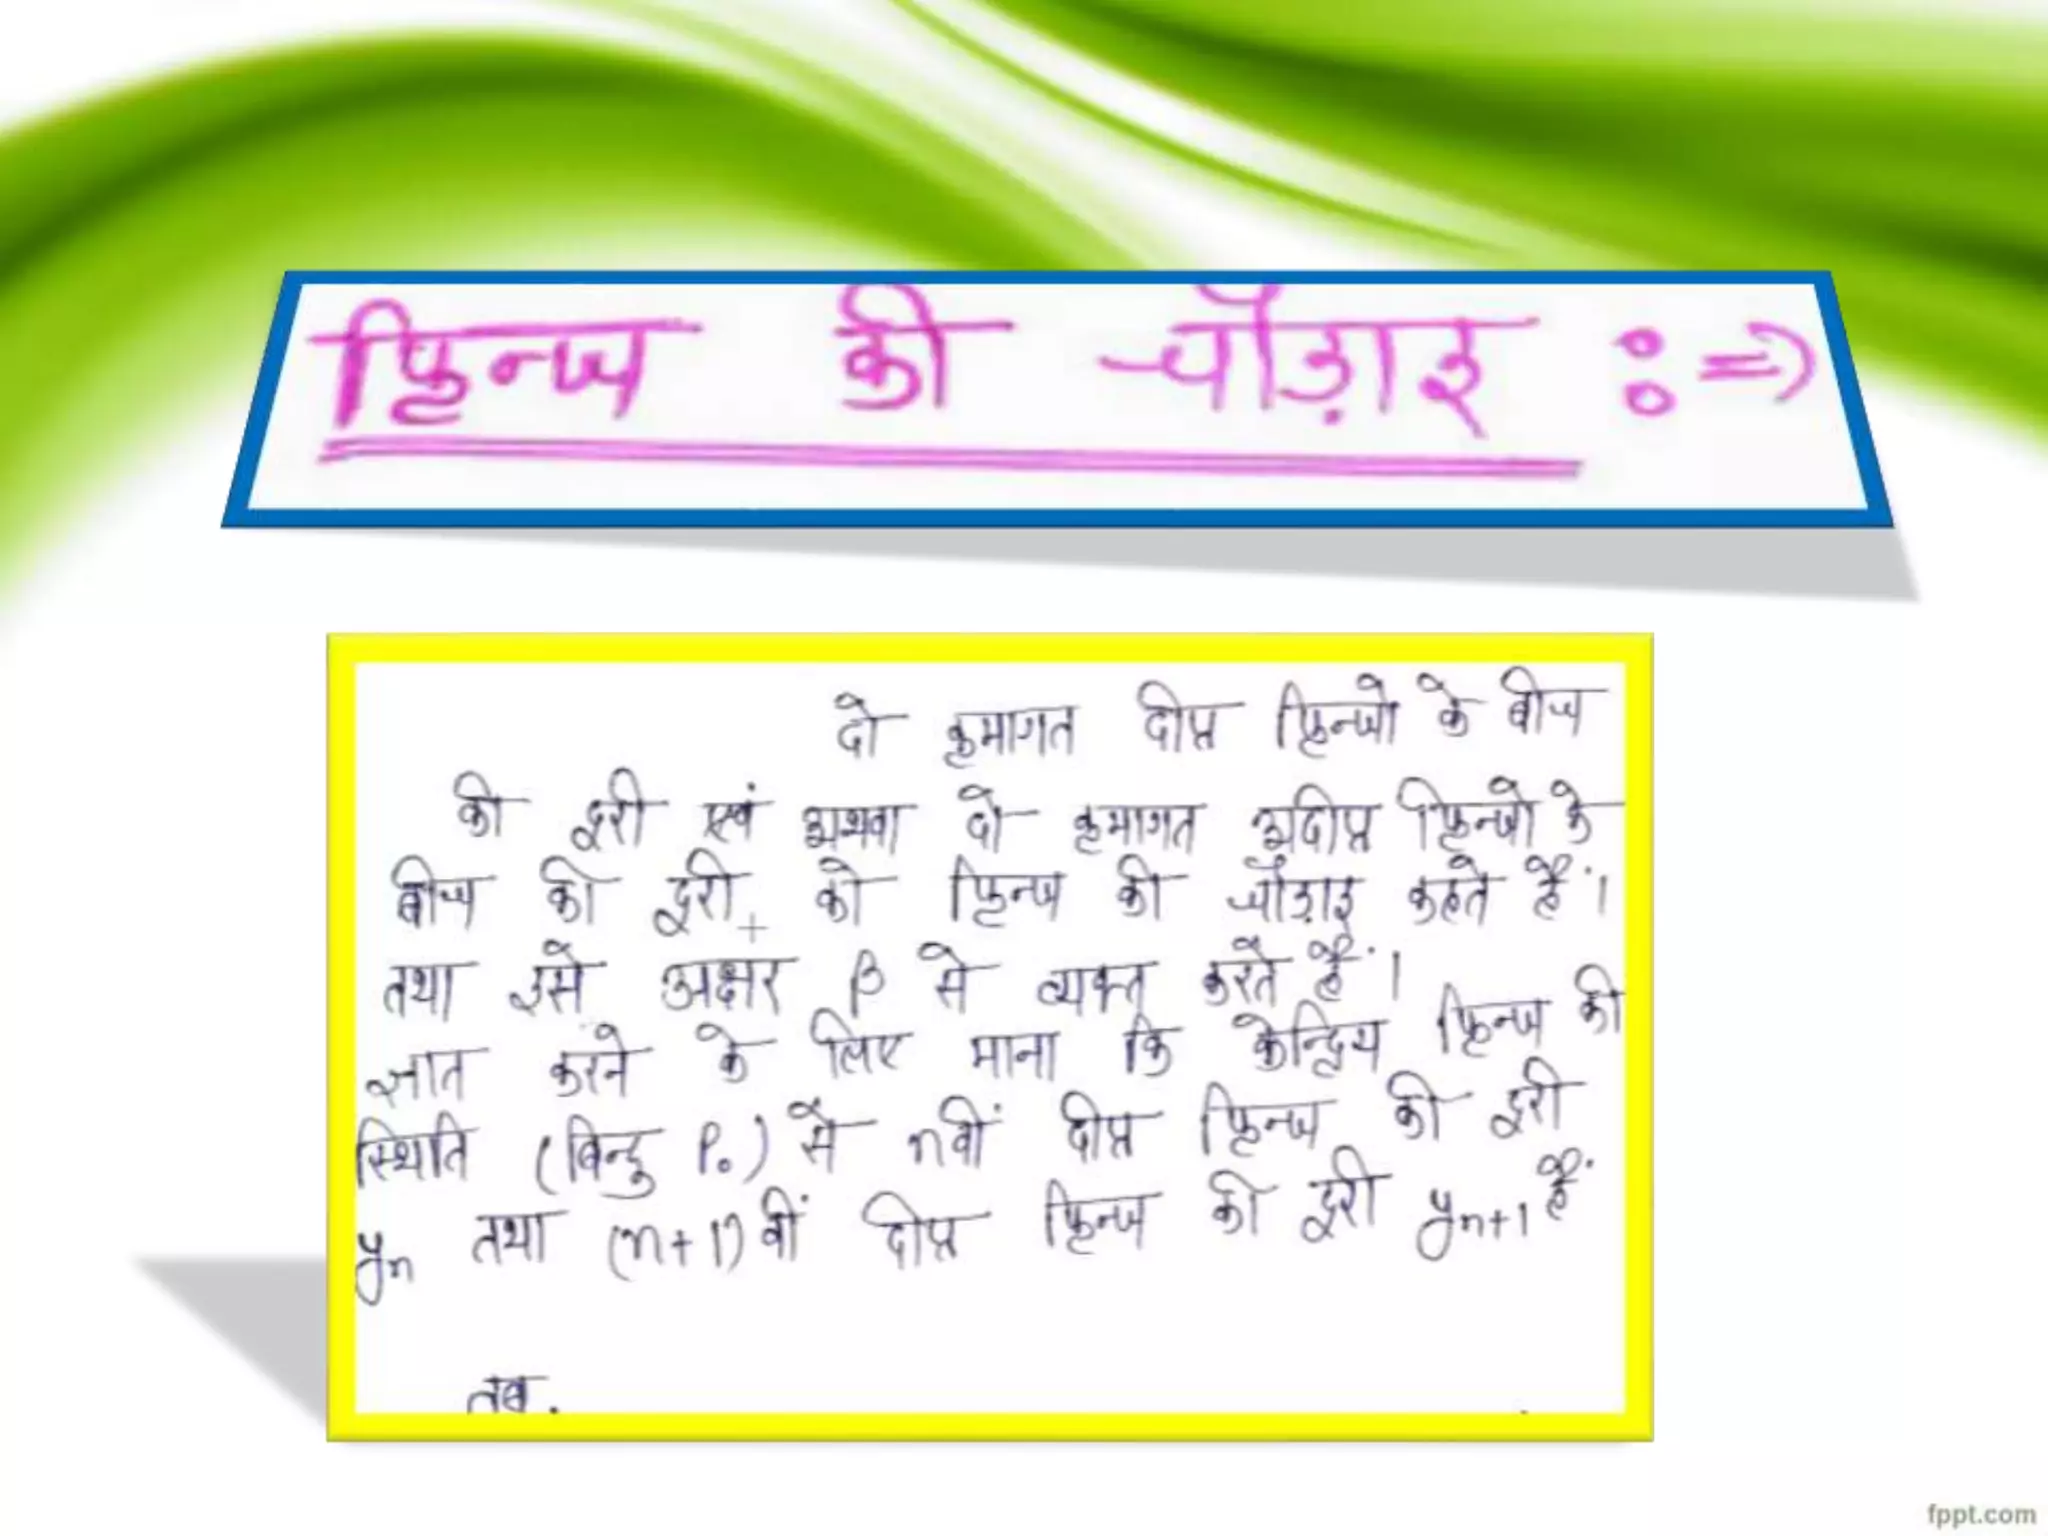 फ्रिन्ज की चौड़ाइ :⇒
दो क्रमागत दीप्त फ्रिन्जो के बीच
की दूरी एवं अथवा दो क्रमागत अदीप्त फ्रिन्जो के
बीच की दूरी को फ्रिन्ज की चौड़ाइ कहते हैं।
तथा इसे अक्षर β से व्यक्त करते हैं।
ज्ञात करने के लिए माना कि केन्द्रिय फ्रिन्ज की
स्थिति (बिन्दु P₀) से nवीं दीप्त फ्रिन्ज की दूरी
yₙ तथा (n+1)वीं दीप्त फ्रिन्ज की दूरी yₙ₊₁ हैं
तब.
fppt.com